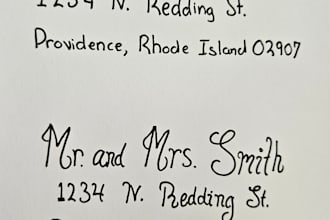 1234 N. Redding St.
Providence, Rhode Island 02907
Mr. and Mrs. Smith
1234 N. Redding St.